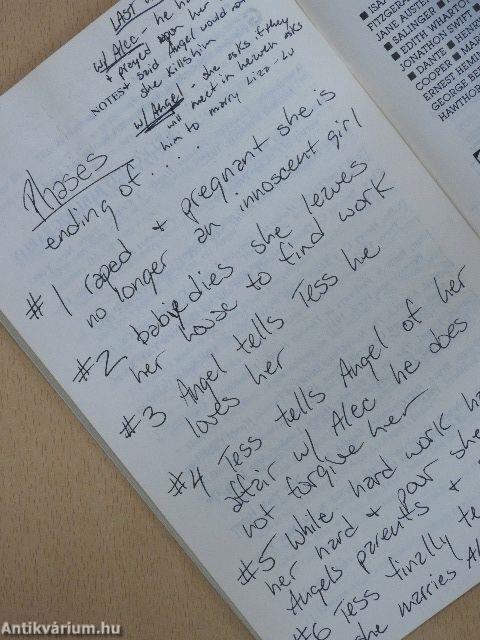 LAST
w/ Alec - he
& preyed upon her
& said Angel would
she kills him
NOTES
w/ Angel - she asks if they
will meet in heaven asks
him to marry Liza-Lu
Phases
ending of . . . .
#1 raped & pregnant she is
no longer an innoscent girl
#2 babie dies she leaves
her house to find work
#3 Angel tells Tess he
loves her
#4 Tess tells Angel of her
affair w/ Alec he does
not forgive her
#5 While hard work
her hard & poor she
Angels parents &
#6 Tess finally
she marries
ISA
FITZGERA
JANE AUSTE
SALINGER
EDITH WHARTO
JONATHON SWIFT
DANTE ■ HENR
COOPER ■ MA
ERNEST HEMI
GEORGE BE
HAWTHOR
Antikvárium.hu